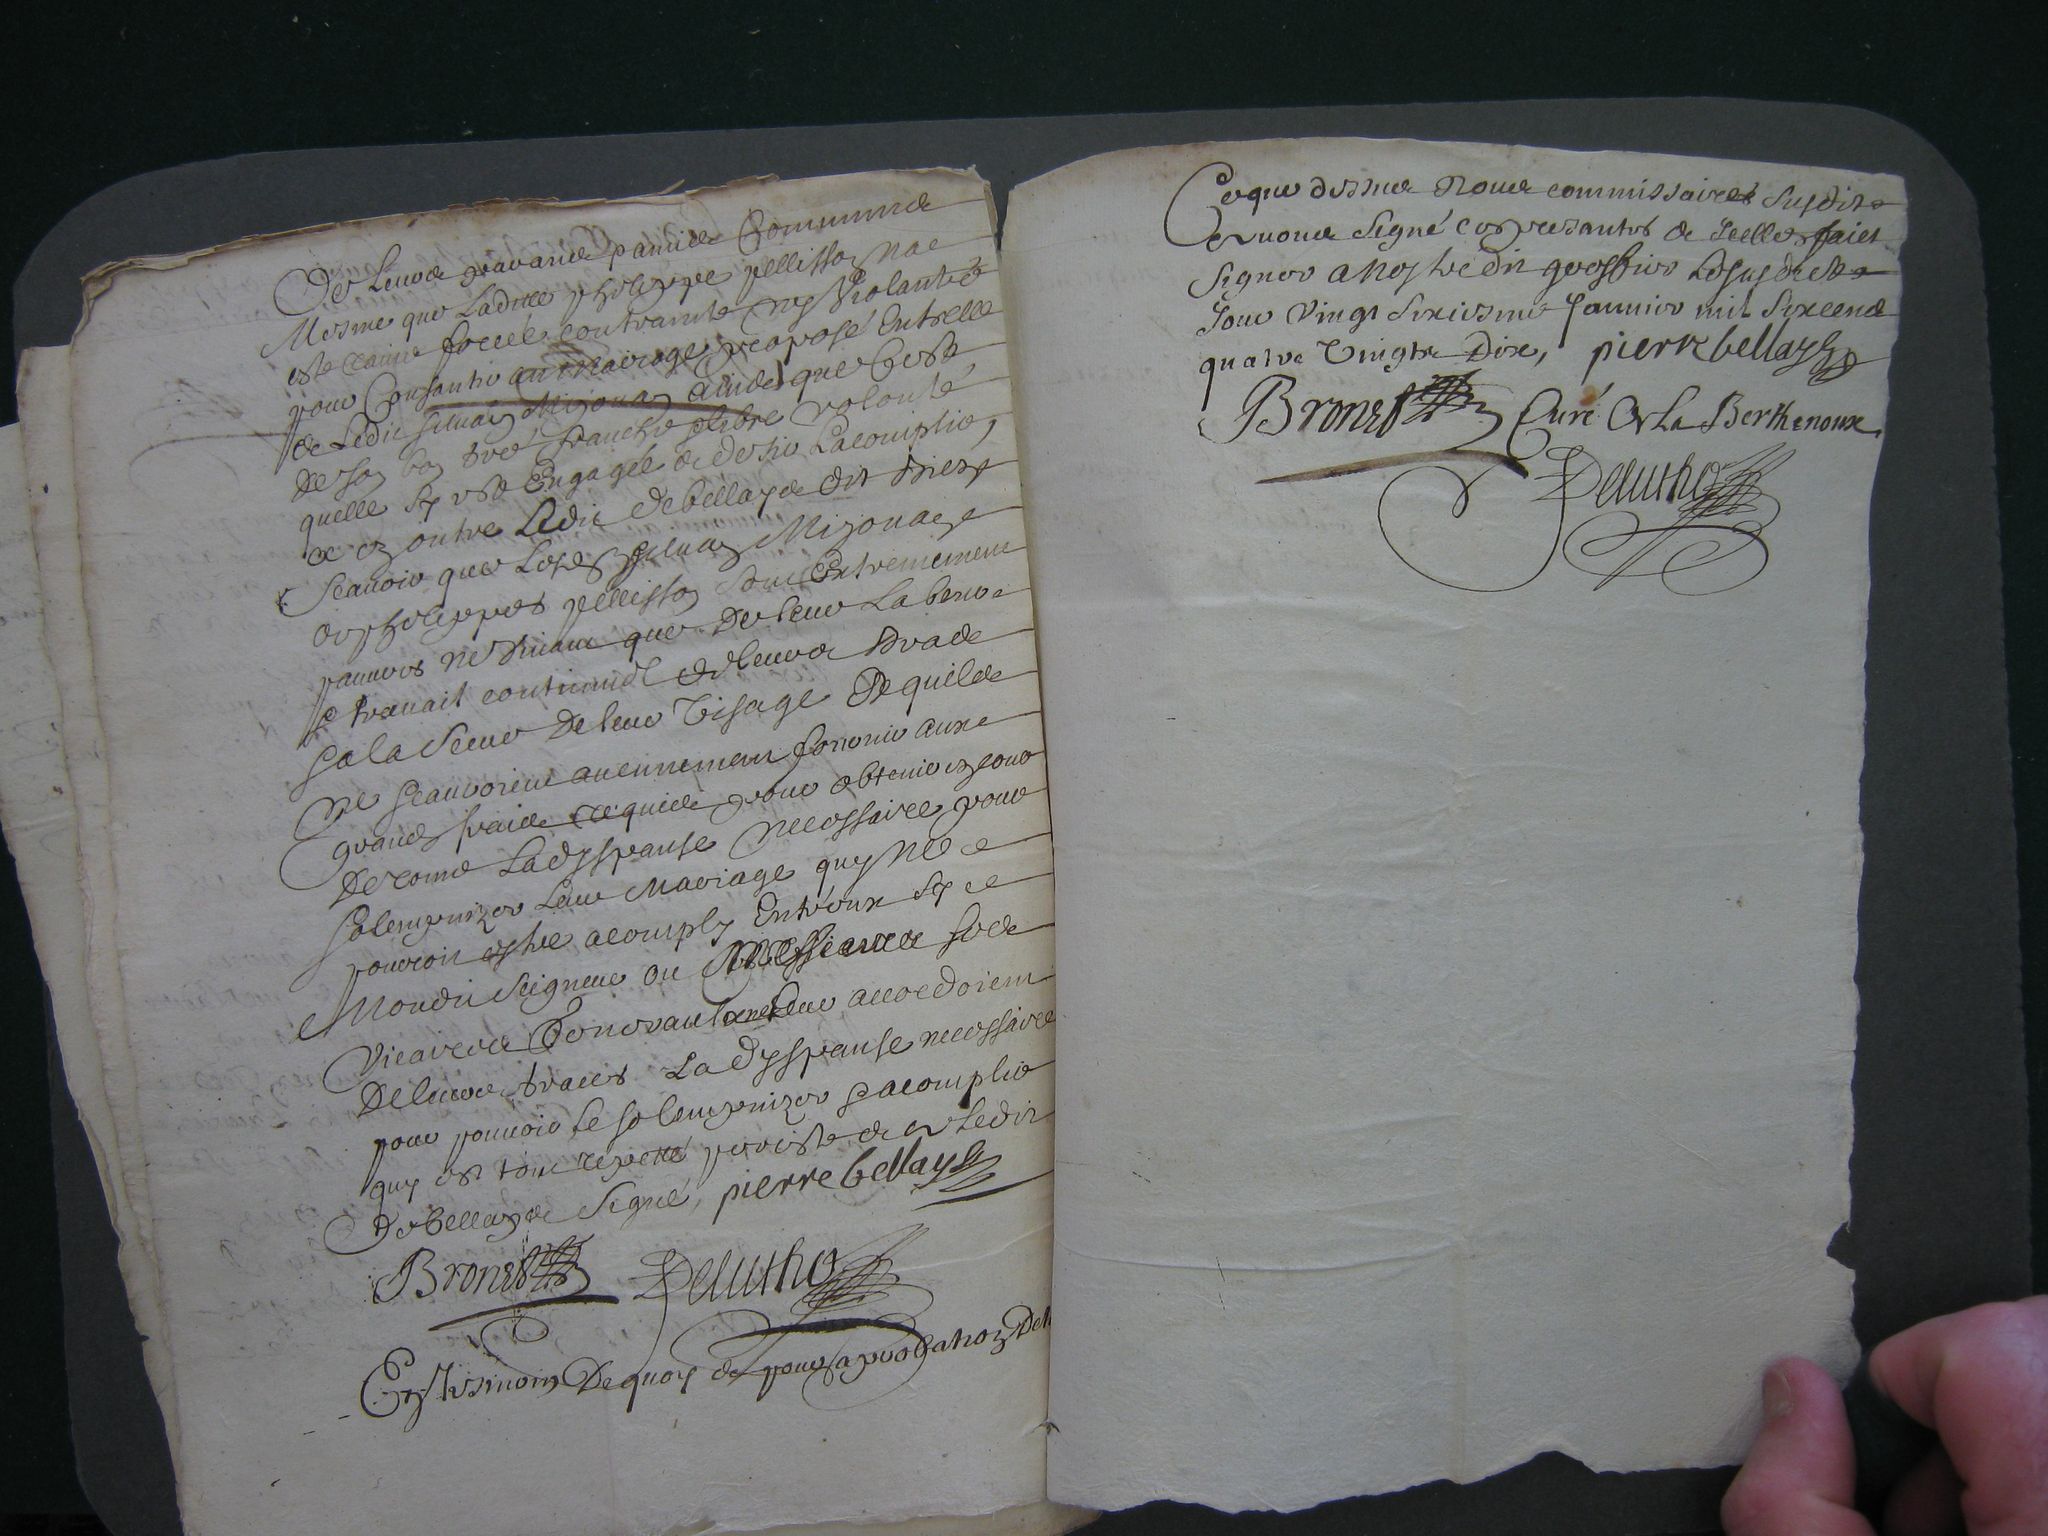 De Leurs gravande parrida Commune
Mesme que Ladicte pholippe pellisson na
este raurie forcée contrainte ny Violantée
pour Consantir au Mariage proposé Entrelle
& Ledit Siluain Mizonay ainde que C'est
de son bon gré franche & libre volonté
quelle sy est Engagée & desire Lacomplir,
& en outre Ledit debellays dit bien
Scauoir que Lesdts Siluain Mizonay
& pholippes pellisson sont Extremement
pauures ne Viuant que de leur Labeur
& trauail continuel de leurs bras &
à la Sueur de leur Visage & quils
ne scauroient aucunement fournir aux
grands fraits requis pour obtenir en cour
de rome La dyspanse necessaire pour
solempnizer Leur Mariage quy ne
pouroit estre acomply Entreux sy
Mondit Seigneur ou Messieurs ses
Vicaires Generaux ne leur accordoient
de leurs graces La dyspanse necessaire
pour pouuoir le solempnizer & acomplir
quy est tout repetté perciste & Ledit
debellays Signé, pierre bellays
Bronet DeluthO
En Tesmoin De quoy & pour aprobation De
Ce que dessus Nous commissaires Susdits
auons Signé Ces presantes & Icelles faict
Signer a Nostredit greffier Lesusdicts
Jour Vingt Sixiesme Januier mil Sixcend
quatre Vingts Dix, pierre bellays
Bronet Curé de La Berthenoux
DeluthO